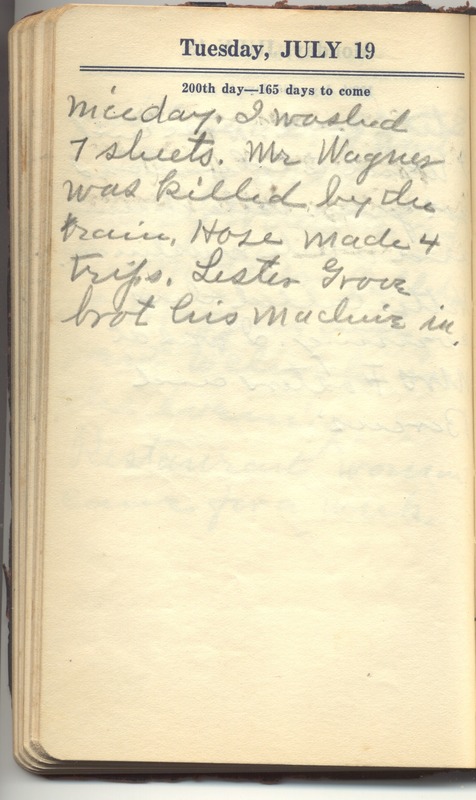 Tuesday, JULY 19
200th day—165 days to come
Nice day. I washed
7 sheets. Mr Wagner
was killed by the
train. Hose made 4
trips. Lester Grove
brot his machine in.